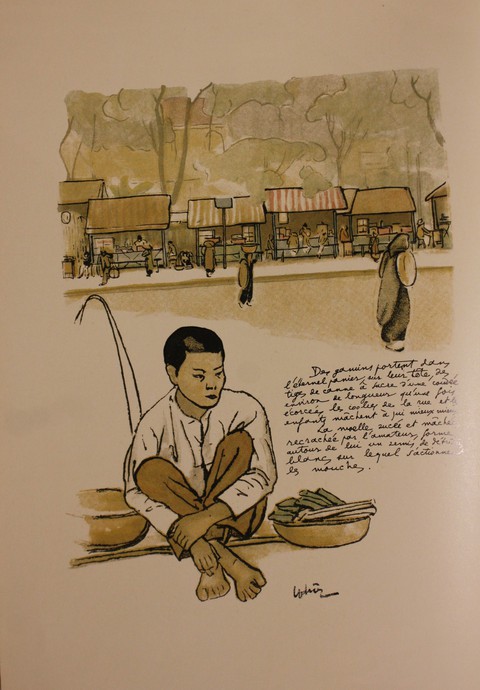 Des gamins portent dans
l'éternel panier, sur leur tête, des
tiges de canne à sucre d'une coudée
environ de longueur qu'une fois
écorcées les coolies de la rue et les
enfants mâchent à qui mieux mieux
La moelle sucée et mâchée
recrachée par l'amateur, forme
autour de lui un semis de détritus
blancs sur lequel s'actionnent
les mouches.